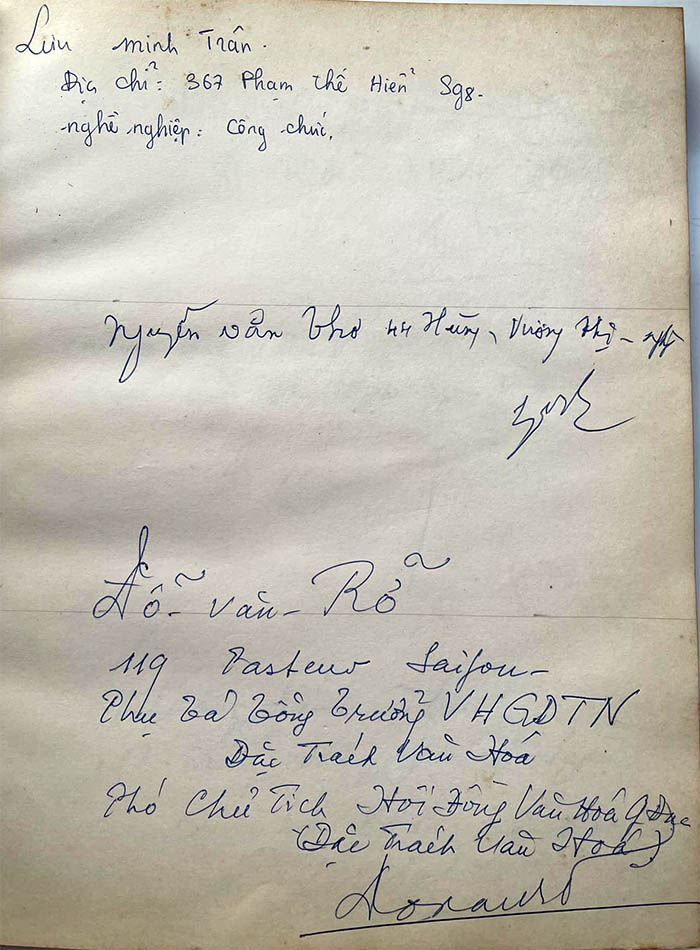 Lưu minh Trân.
Địa chỉ: 367 Phạm Thế Hiển Sg8.
nghề nghiệp: Công chức.
Nguyễn văn Thơ 44 Hùng Vương Thị - nghè
Đỗ - văn - Rỡ
119 Pasteur Saigon -
Phụ Tá Tổng Trưởng VHGDTN
Đặc Trách Văn Hoá
Phó Chủ Tịch Hội Đồng Văn Hoá GDục
(Đặc Trách Văn Hoá)